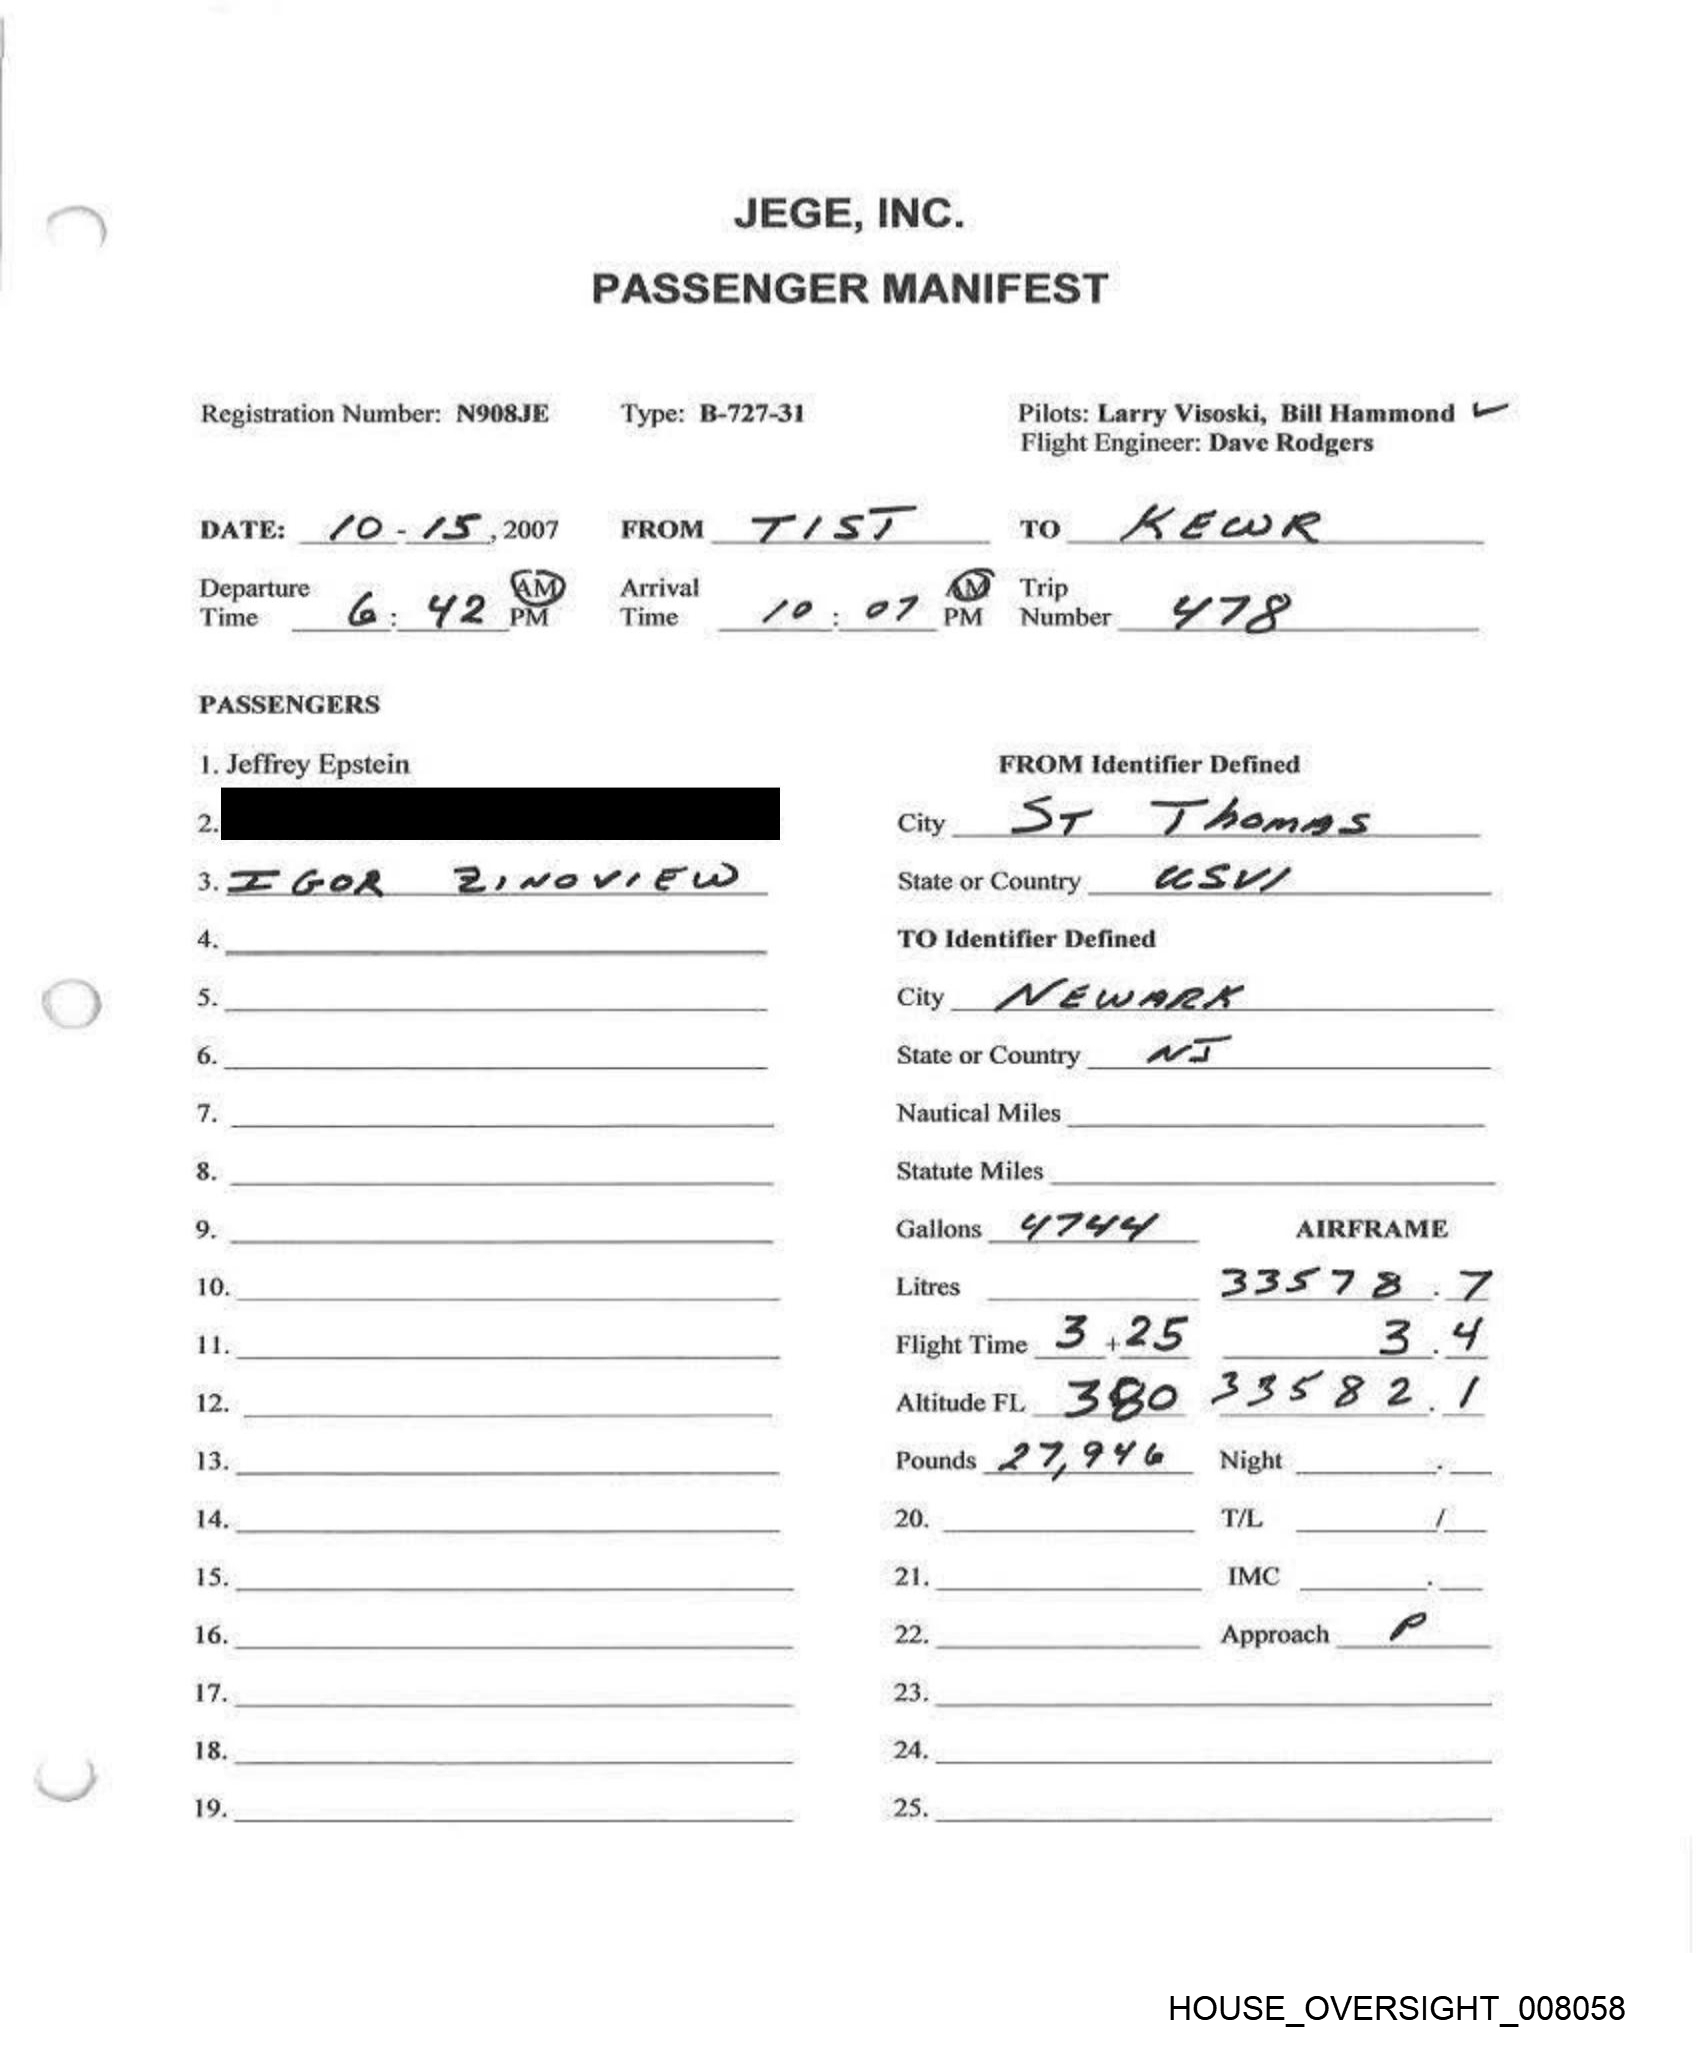 JEGE, INC.
PASSENGER MANIFEST
Registration Number: N908JE Type: B-727-31 Pilots: Larry Visoski, Bill Hammond
Flight Engineer: Dave Rodgers
DATE: 10 - 15, 2007 FROM TIST TO KEWR
Departure Time 6 : 42 AM PM Arrival Time 10 : 07 AM PM Trip Number 478
PASSENGERS
1. Jeffrey Epstein
2.
3. IGOR ZINOVIEW
4.
5.
6.
7.
8.
9.
10.
11.
12.
13.
14.
15.
16.
17.
18.
19.
FROM Identifier Defined
City ST Thomas
State or Country USVI
TO Identifier Defined
City NEWARK
State or Country NJ
Nautical Miles
Statute Miles
Gallons 4744 AIRFRAME
Litres 33578.7
Flight Time 3 + 25 3.4
Altitude FL 380 33582.1
Pounds 27,946 Night .
20. T/L /
21. IMC .
22. Approach P
23.
24.
25.
HOUSE_OVERSIGHT_008058